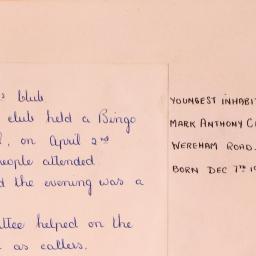 s Club
club held a Bingo
, on April 2nd
people attended
the evening was a
ttee helped on the
as callers.
YOUNGEST INHABI
MARK ANTHONY C
WEREHAM ROAD.
BORN DEC 7TH 19